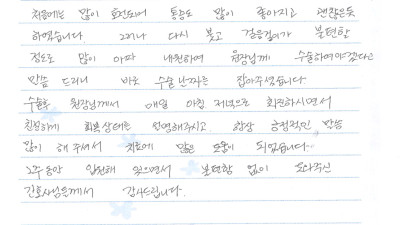 처음에는 많이 호전되어 통증도 많이 좋아지고 괜찮은듯
하였습니다 그러나 다시 붓고 걸음걸이가 불편할
정도로 많이 아파 내원하여 원장님께 수술하여야겠다는
말씀 드리니 바로 수술 날짜를 잡아주셨습니다
수술후 원장님께서 매일 아침 저녁으로 회진하시면서
친절하게 회복상태를 설명해주시고, 항상 긍정적인 말씀
많이 해 주셔서 치료에 많은 도움이 되었습니다.
2주동안 입원해 있으면서 불편함 없이 도와주신
간호사님들께서 감사드립니다.